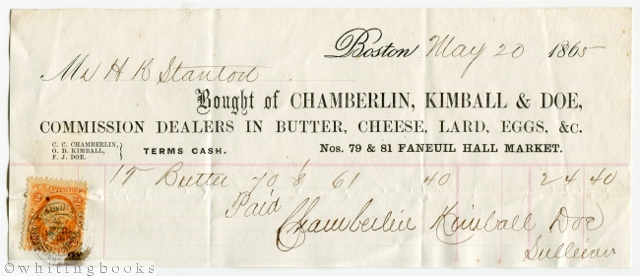 Boston May 20 1865
Mr H K Stanton
Bought of CHAMBERLIN, KIMBALL & DOE,
COMMISSION DEALERS IN BUTTER, CHEESE, LARD, EGGS, &C.
C. C. CHAMBERLIN,
O. D. KIMBALL,
F. J. DOE.
TERMS CASH.
Nos. 79 & 81 FANEUIL HALL MARKET.
1 Butter 70 61 40 24 40
Paid
Chamberlin Kimball Doe
Sullivan
©whitingbooks